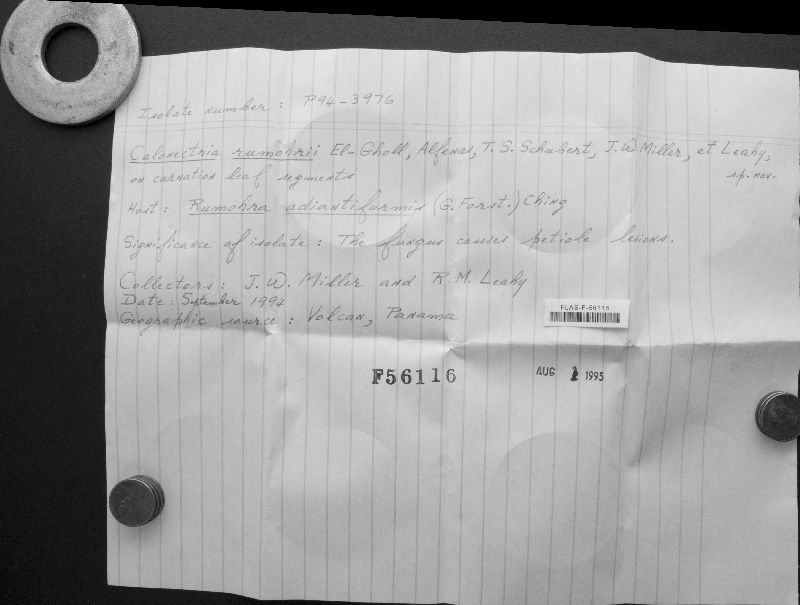 Isolate number: P94-3976
Calonectria rumohrii El-Gholl, Alfenas, T. S. Schubert, J. W. Miller, et Leahy,
on carnation leaf segments sp. nov.
Host: Rumohra adiantiformis (G. Forst.) Ching
Significance of isolate: The fungus causes petiole lesions.
Collectors: J. W. Miller and R. M. Leahy
Date: September 1994
Geographic source: Volcan, Panama
FLAS-F-56116
F56116
AUG 1 1995